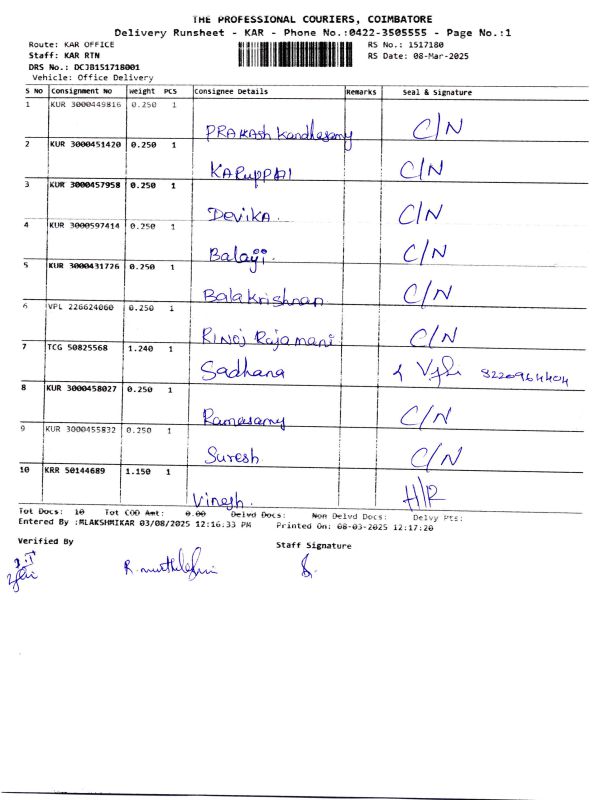 THE PROFESSIONAL COURIERS, COIMBATORE
Delivery Runsheet - KAR - Phone No.:0422-3505555 - Page No.:1
Route: KAR OFFICE RS No.: 1517180
Staff: KAR RTN RS Date: 08-Mar-2025
DRS No.: DCJB151718001
Vehicle: Office Delivery
S No Consignment No Weight PCS Consignee Details Remarks Seal & Signature
1 KUR 3000449816 0.250 1
PRAKASH Kandhasamy C/N
2 KUR 3000451420 0.250 1
KARUPPAI C/N
3 KUR 3000457958 0.250 1
DEVIKA. C/N
4 KUR 3000597414 0.250 1
Balaji. C/N
5 KUR 3000431726 0.250 1
Balakrishnan C/N
6 VPL 226624060 0.250 1
RINOJ Rajamani C/N
7 TCG 50825568 1.240 1
Sadhana
8 KUR 3000458027 0.250 1
Ramasamy C/N
9 KUR 3000455832 0.250 1
Suresh. C/N
10 KRR 50144689 1.150 1
Vinesh. H/R
Tot Docs: 10 Tot COD Amt: 0.00 Delvd Docs: Non Delvd Docs: Delvy Pts:
Entered By :MLAKSHMIKAR 03/08/2025 12:16:33 PM Printed On: 08-03-2025 12:17:20
Verified By Staff Signature